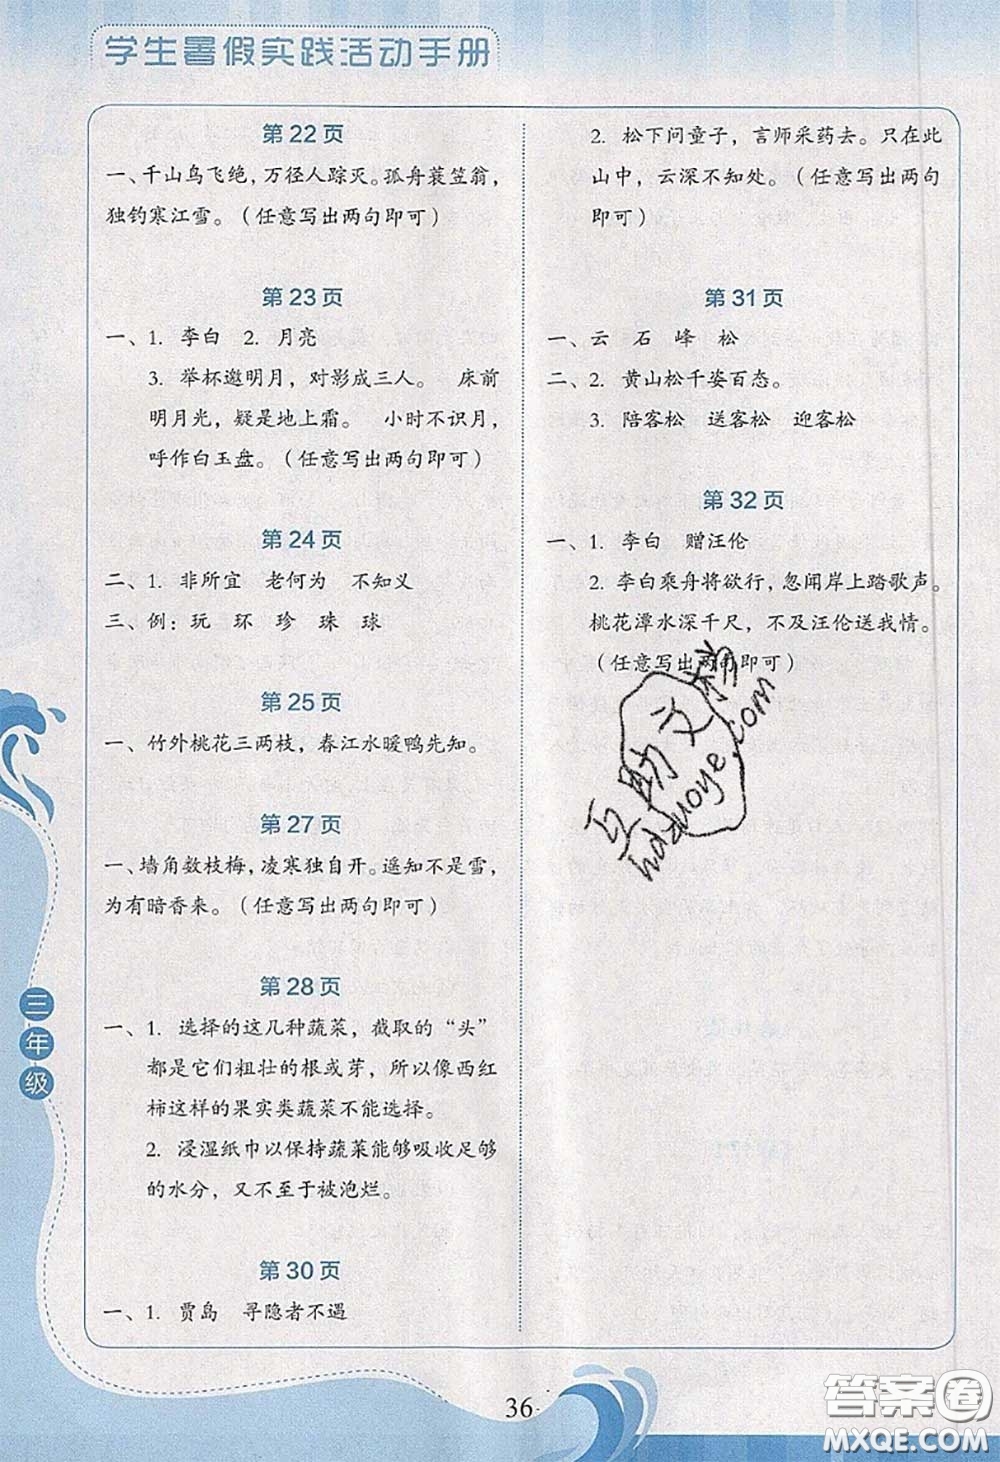 学生暑假实践活动手册
第22页
一、千山鸟飞绝，万径人踪灭。孤舟蓑笠翁，
独钓寒江雪。（任意写出两句即可）
第23页
一、1. 李白 2. 月亮
3. 举杯邀明月，对影成三人。 床前
明月光，疑是地上霜。 小时不识月，
呼作白玉盘。（任意写出两句即可）
第24页
二、1. 非所宜 老何为 不知义
三、例：玩 环 珍 珠 球
第25页
一、竹外桃花三两枝，春江水暖鸭先知。
第27页
一、墙角数枝梅，凌寒独自开。遥知不是雪，
为有暗香来。（任意写出两句即可）
第28页
一、1. 选择的这几种蔬菜，截取的“头”
都是它们粗壮的根或芽，所以像西红
柿这样的果实类蔬菜不能选择。
2. 浸湿纸巾以保持蔬菜能够吸收足够
的水分，又不至于被泡烂。
第30页
一、1. 贾岛 寻隐者不遇
2. 松下问童子，言师采药去。只在此
山中，云深不知处。（任意写出两句
即可）
第31页
一、云 石 峰 松
二、2. 黄山松千姿百态。
3. 陪客松 送客松 迎客松
第32页
一、1. 李白 赠汪伦
2. 李白乘舟将欲行，忽闻岸上踏歌声。
桃花潭水深千尺，不及汪伦送我情。
（任意写出两句即可）
互助文档
hdzuoye.com
三年级
36
答案圈
MXQE.COM